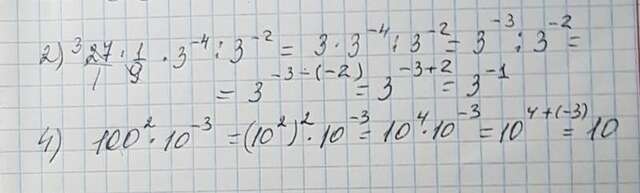 2) ³27/1 · 1/9 · 3⁻⁴ : 3⁻² = 3 · 3⁻⁴ : 3⁻² = 3⁻³ : 3⁻² =
= 3⁻³⁻⁽⁻²⁾ = 3⁻³⁺² = 3⁻¹
4) 100² · 10⁻³ = (10²)² · 10⁻³ = 10⁴ · 10⁻³ = 10⁴⁺⁽⁻³⁾ = 10